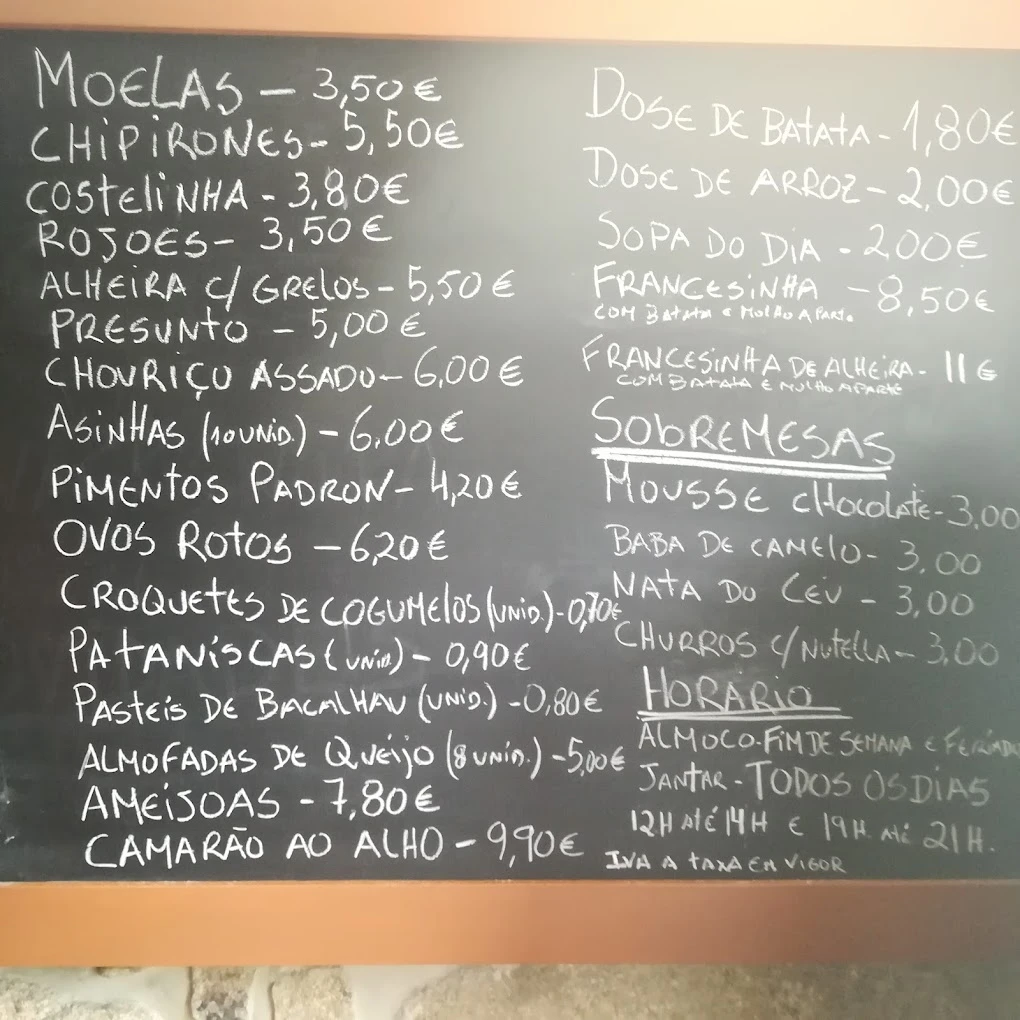 MOELAS - 3,50€
CHIPIRONES - 5,50€
COSTELINHA - 3,80€
ROJOES - 3,50€
ALHEIRA C/ GRELOS - 5,50€
PRESUNTO - 5,00€
CHOURIÇO ASSADO - 6,00€
ASINHAS (10 UNID.) - 6,00€
PIMENTOS PADRON - 4,20€
OVOS ROTOS - 6,20€
CROQUETES DE COGUMELOS (UNID.) - 0,70€
PATANISCAS (UNID.) - 0,90€
PASTEIS DE BACALHAU (UNID.) - 0,80€
ALMOFADAS DE QUEIJO (8 UNID.) - 5,00€
AMEIJOAS - 7,80€
CAMARÃO AO ALHO - 9,90€
DOSE DE BATATA - 1,80€
DOSE DE ARROZ - 2,00€
SOPA DO DIA - 200€
FRANCESINHA - 8,50€
COM BATATA E MOLHO A PARTE
FRANCESINHA DE ALHEIRA - 11€
COM BATATA E MOLHO A PARTE
SOBREMESAS
MOUSSE CHOCOLATE - 3,00
BABA DE CAMELO - 3,00
NATA DO CÉU - 3,00
CHURROS C/ NUTELLA - 3,00
HORÁRIO
ALMOCO - FIM DE SEMANA E FERIADO
JANTAR - TODOS OS DIAS
12H ATÉ 14H E 19H ATÉ 21H.
IVA A TAXA EM VIGOR